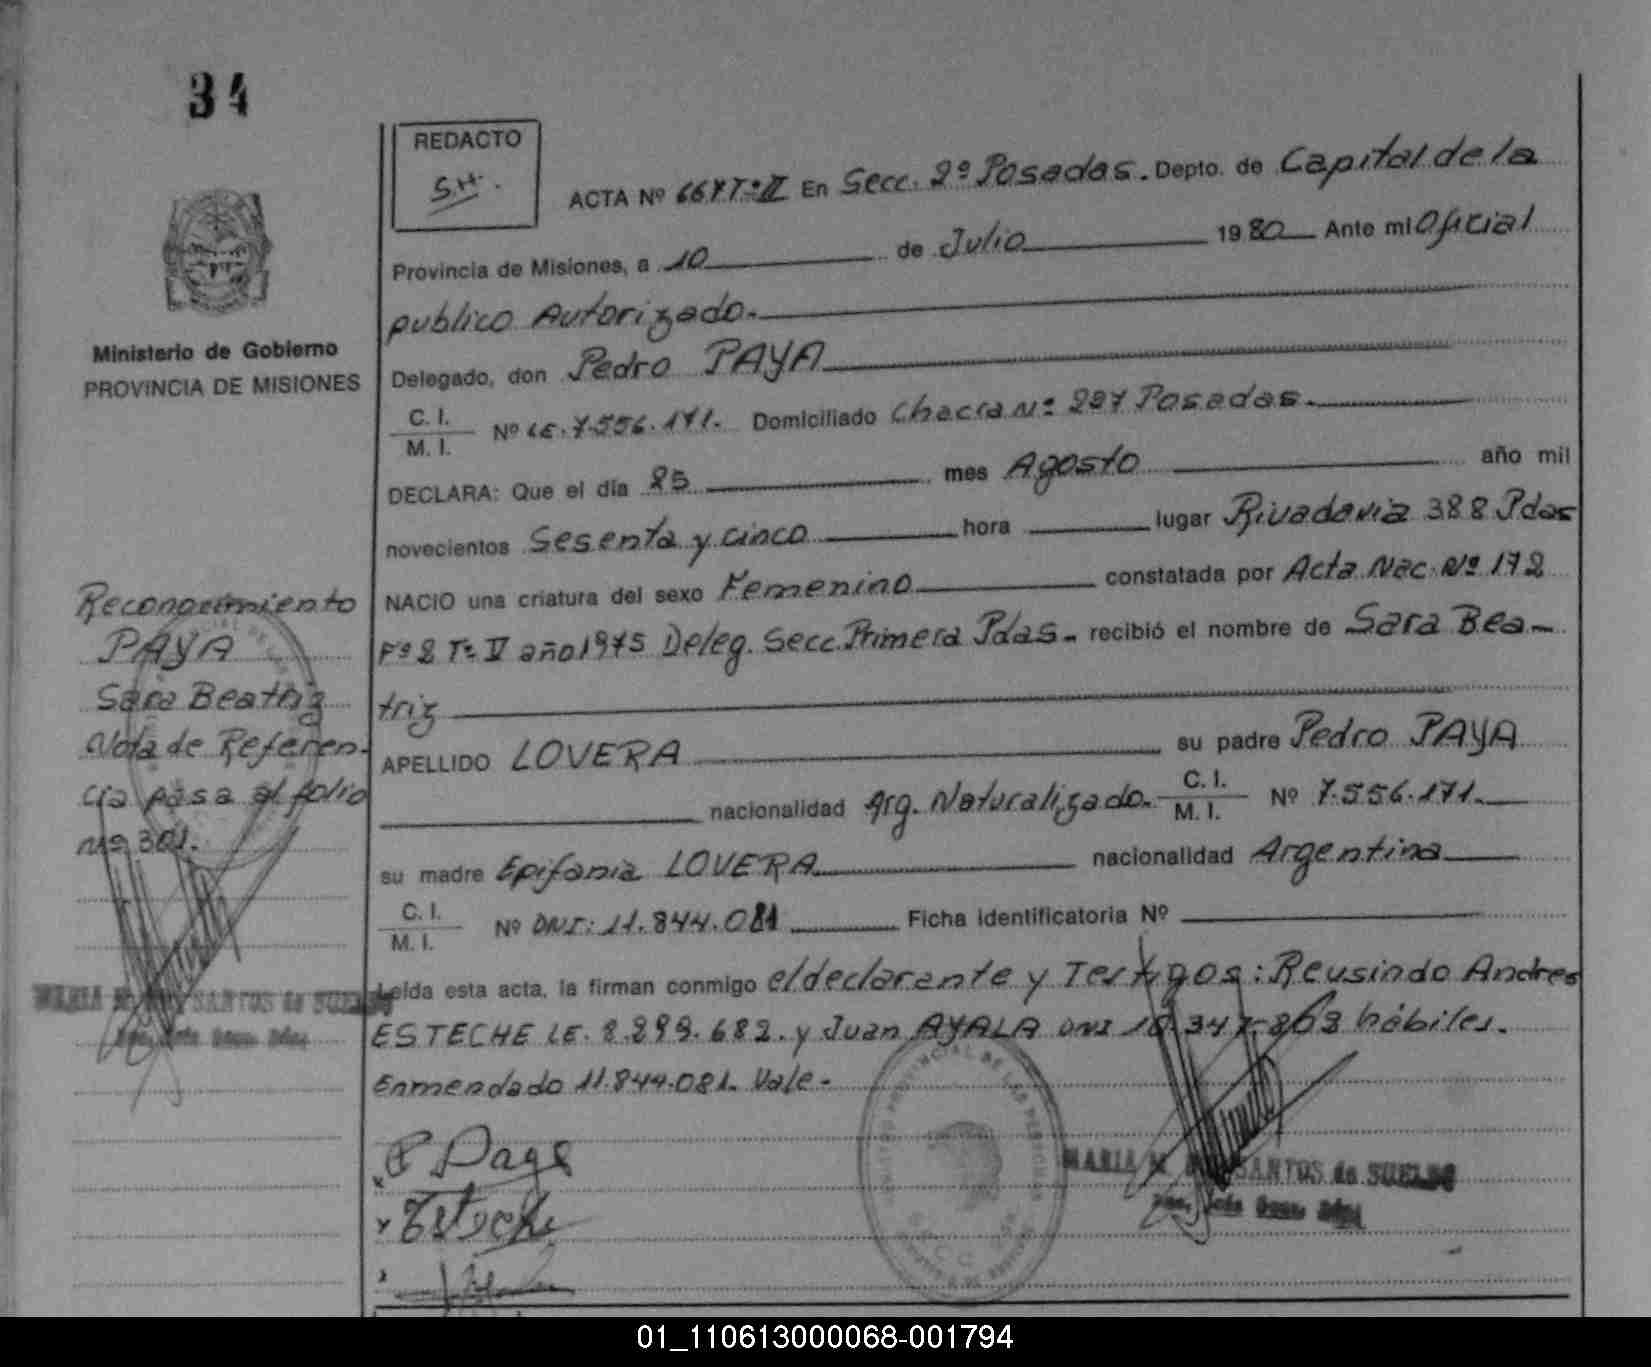 34
REDACTO
S.H.
ACTA Nº 667 Tº II En Secc. 2º Posadas. Depto. de Capital de la
Provincia de Misiones, a 10 de Julio 1980 Ante mi Oficial
publico Autorizado.
Delegado, don Pedro PAYA
C. I.
M. I. Nº LE. 7.556.171. Domiciliado Chacra Nº 227 Posadas.
DECLARA: Que el día 25 mes Agosto año mil
novecientos Sesenta y cinco hora lugar Rivadavia 388 Pdas
NACIO una criatura del sexo Femenino constatada por Acta Nac. Nº 172
Fº 2 Tº V año 1975 Deleg. Secc. Primera Pdas. recibió el nombre de Sara Bea-
triz
APELLIDO LOVERA su padre Pedro PAYA
nacionalidad Arg. Naturalizado. C. I. M. I. Nº 7.556.171.
su madre Epifania LOVERA nacionalidad Argentina
C. I.
M. I. Nº DNI: 11.844.081 Ficha identificatoria Nº
Leída esta acta, la firman conmigo el declarante y Testigos: Reusindo Andres
ESTECHE LE. 8.299.682. y Juan AYALA DNI hábiles.
Enmendado 11.844.081. Vale.
Ministerio de Gobierno
PROVINCIA DE MISIONES
Reconocimiento
PAYA
Sara Beatriz
Nota de Referen-
cia pasa al folio
nº 301.
MARIA SANTOS de SUELDO
P Paya
Esteche
MARIA M. SANTOS de SUELDO
01_110613000068-001794